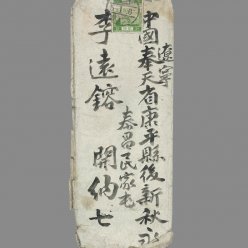 遼寧
中國奉天省康平縣後新秋永
泰昌民家屯
李遠鎔 開納七